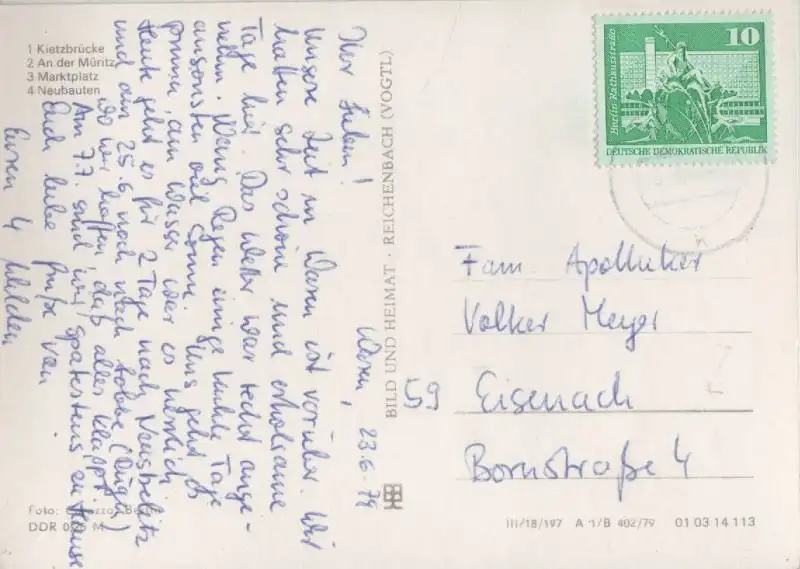 1 Kietzbrücke
2 An der Müritz
3 Marktplatz
4 Neubauten
Waren, 23.6.79
Ihr Lieben!
Unsere Zeit in Waren ist vorüber. Wir
hatten sehr schöne und erholsame
Tage hier. Das Wetter war recht ange-
nehm. Wenig Regen einige kühle Tage
ansonsten viel Sonne. Uns geht es
prima, am Wasser war es herrlich
Heute geht es für 2 Tage nach Neustrelitz
und am 25.6 noch nach
wo wir hoffen, daß alles klappt.
Am 7.7. sind wir spätestens zu Hause
Euch liebe Grüße von
Euren 4
Foto:
DDR 0,25 M
BILD UND HEIMAT · REICHENBACH (VOGTL)
10
Berlin, Rathausstraße
DEUTSCHE DEMOKRATISCHE REPUBLIK
Fam. Apotheker
Volker Meyer
59 Eisenach
Bornstraße 4
III/18/197 A 1/B 402/79 01 03 14 113